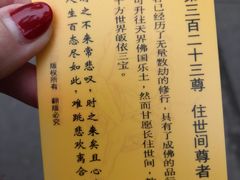 第二百二十三尊 住世间尊者
已经历了无量数劫的修行，具有了成佛的品
可升往天界佛国乐土，然而甘愿长住世间，
十方世界皈依三宝。
时之不来常悲叹，时之来矣且心
人生百态尽如此，难跳悲欢离合
版权所有 翻版必究